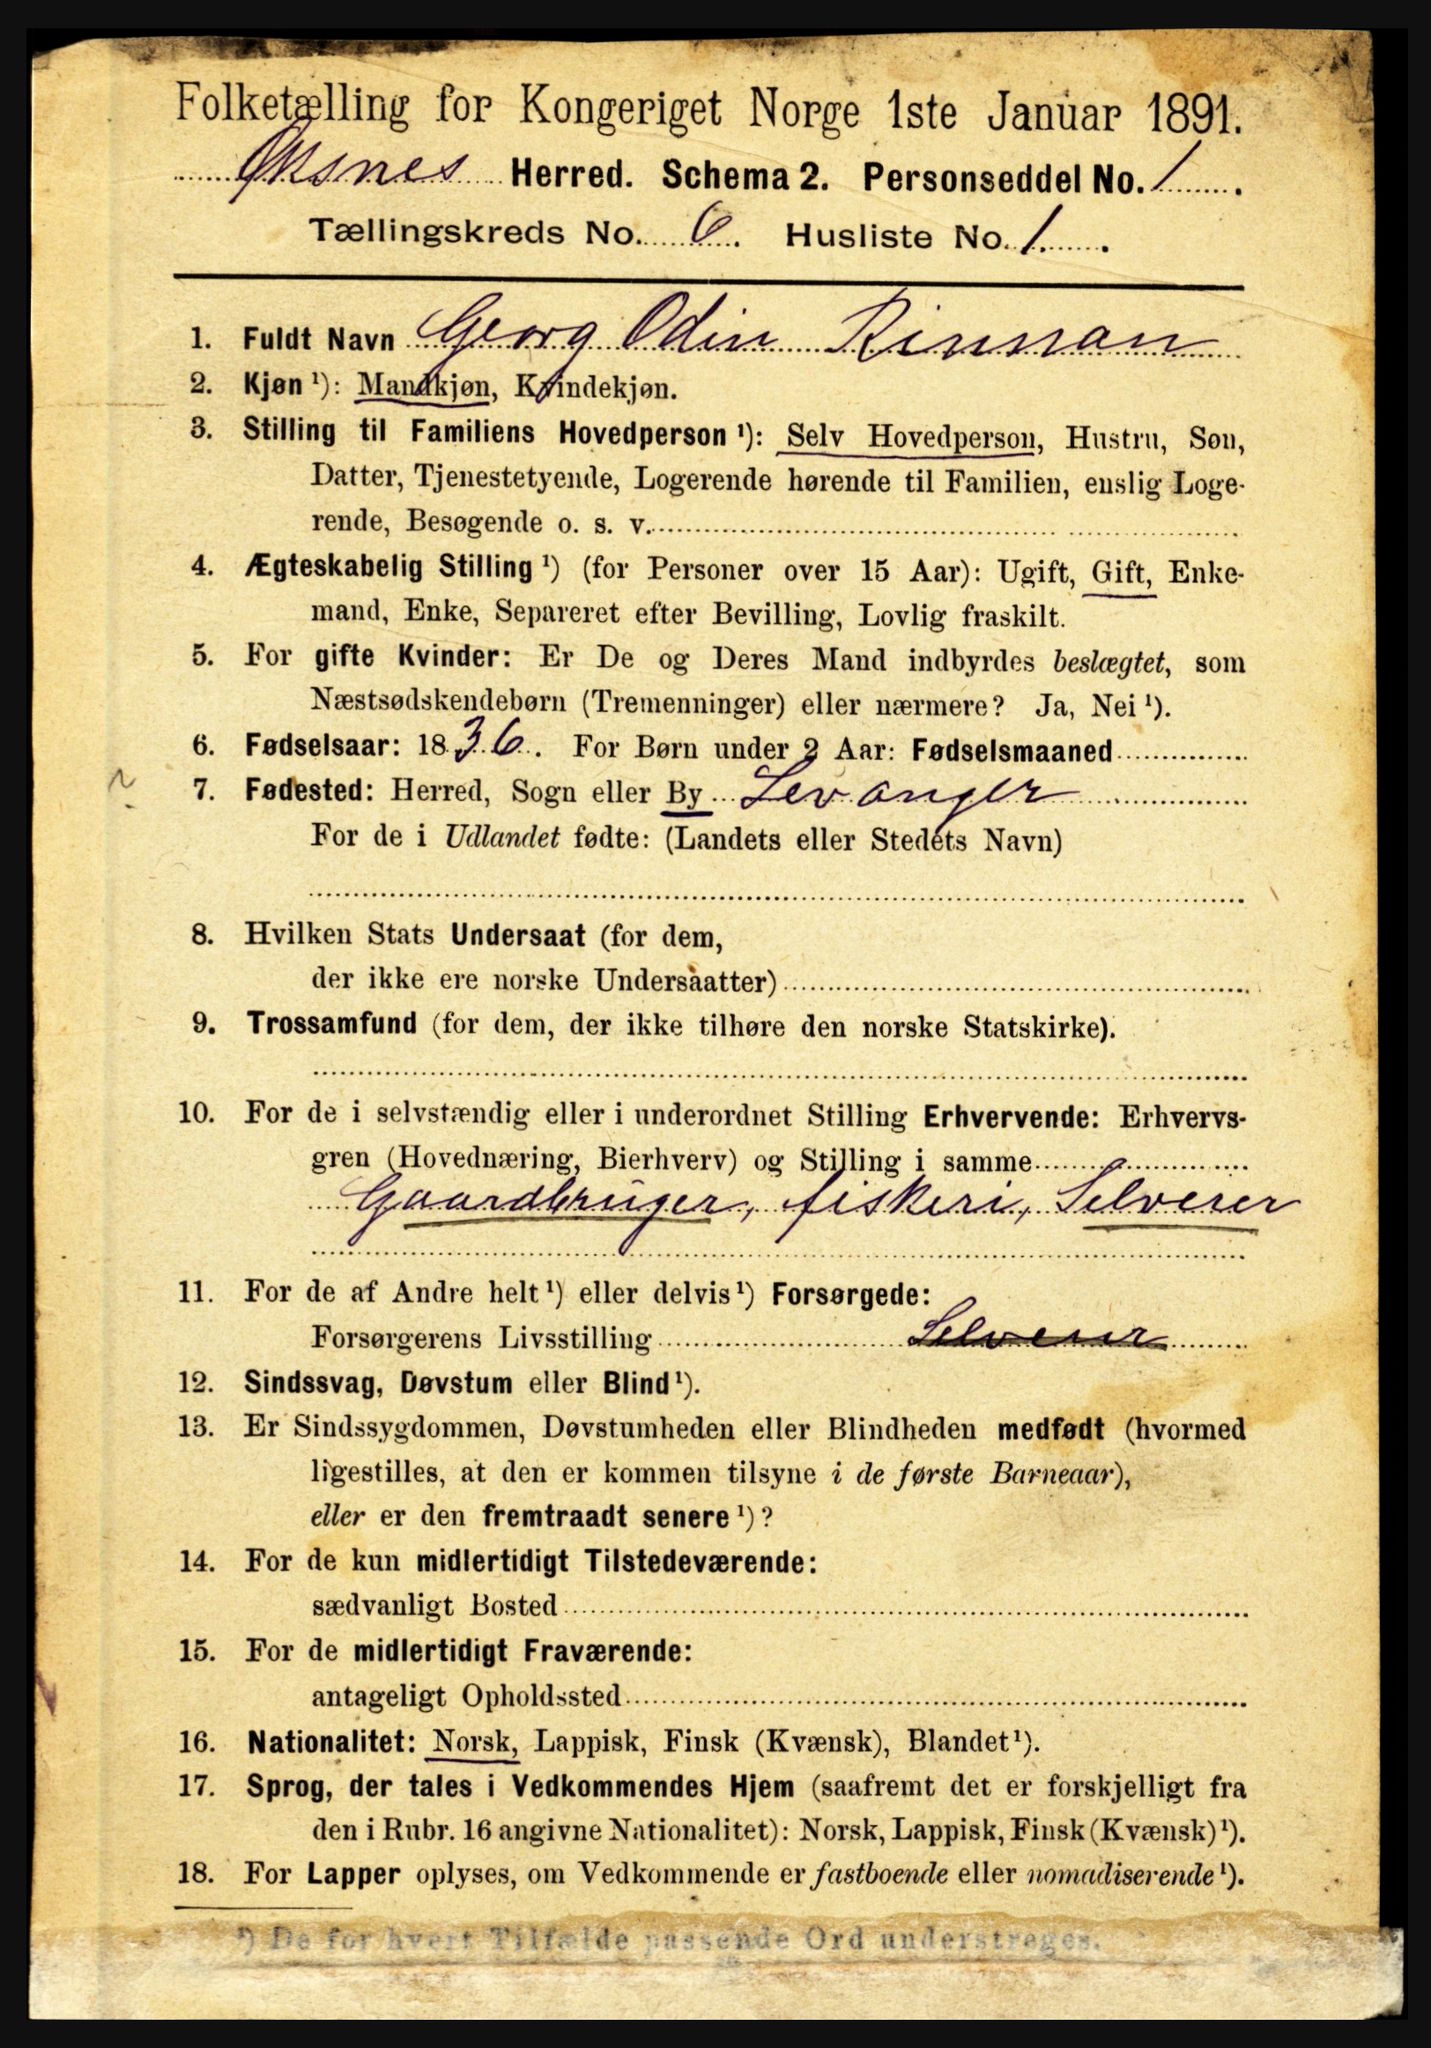 Folketælling for Kongeriget Norge 1ste Januar 1891.
Øksnes Herred. Schema 2. Personseddel No. 1.
Tællingskreds No. 6. Husliste No. 1.
1. Fuldt Navn Georg Odin Rinnan
2. Kjøn ¹): Mandkjøn, Kvindekjøn.
3. Stilling til Familiens Hovedperson ¹): Selv Hovedperson, Hustru, Søn,
Datter, Tjenestetyende, Logerende hørende til Familien, enslig Loge-
rende, Besøgende o. s. v.
4. Ægteskabelig Stilling ¹) (for Personer over 15 Aar): Ugift, Gift, Enke-
mand, Enke, Separeret efter Bevilling, Lovlig fraskilt.
5. For gifte Kvinder: Er De og Deres Mand indbyrdes beslægtet, som
Næstsødskendebørn (Tremenninger) eller nærmere? Ja, Nei ¹).
6. Fødselsaar: 1836. For Børn under 2 Aar: Fødselsmaaned
7. Fødested: Herred, Sogn eller By Levanger
For de i Udlandet fødte: (Landets eller Stedets Navn)
8. Hvilken Stats Undersaat (for dem,
der ikke ere norske Undersaatter)
9. Trossamfund (for dem, der ikke tilhøre den norske Statskirke).
10. For de i selvstændig eller i underordnet Stilling Erhvervende: Erhvervs-
gren (Hovednæring, Bierhverv) og Stilling i samme
Gaardbruger, fiskeri, Selveier
11. For de af Andre helt ¹) eller delvis ¹) Forsørgede:
Forsørgerens Livsstilling Selveier
12. Sindssvag, Døvstum eller Blind ¹).
13. Er Sindssygdommen, Døvstumheden eller Blindheden medfødt (hvormed
ligestilles, at den er kommen tilsyne i de første Barneaar),
eller er den fremtraadt senere ¹)?
14. For de kun midlertidigt Tilstedeværende:
sædvanligt Bosted
15. For de midlertidigt Fraværende:
antageligt Opholdssted
16. Nationalitet: Norsk, Lappisk, Finsk (Kvænsk), Blandet ¹).
17. Sprog, der tales i Vedkommendes Hjem (saafremt det er forskjelligt fra
den i Rubr. 16 angivne Nationalitet): Norsk, Lappisk, Finsk (Kvænsk) ¹).
18. For Lapper oplyses, om Vedkommende er fastboende eller nomadiserende ¹).
¹) De for hvert Tilfælde passende Ord understreges.